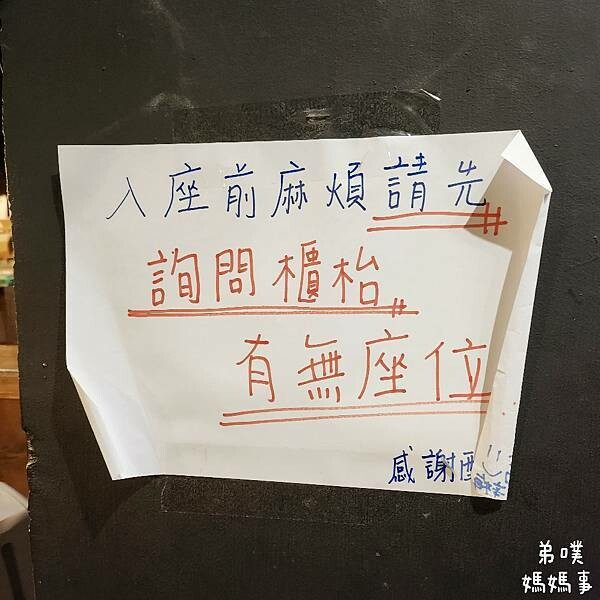 入座前麻煩請先
詢問櫃枱
有無座位
感謝配
弟噗
媽媽事